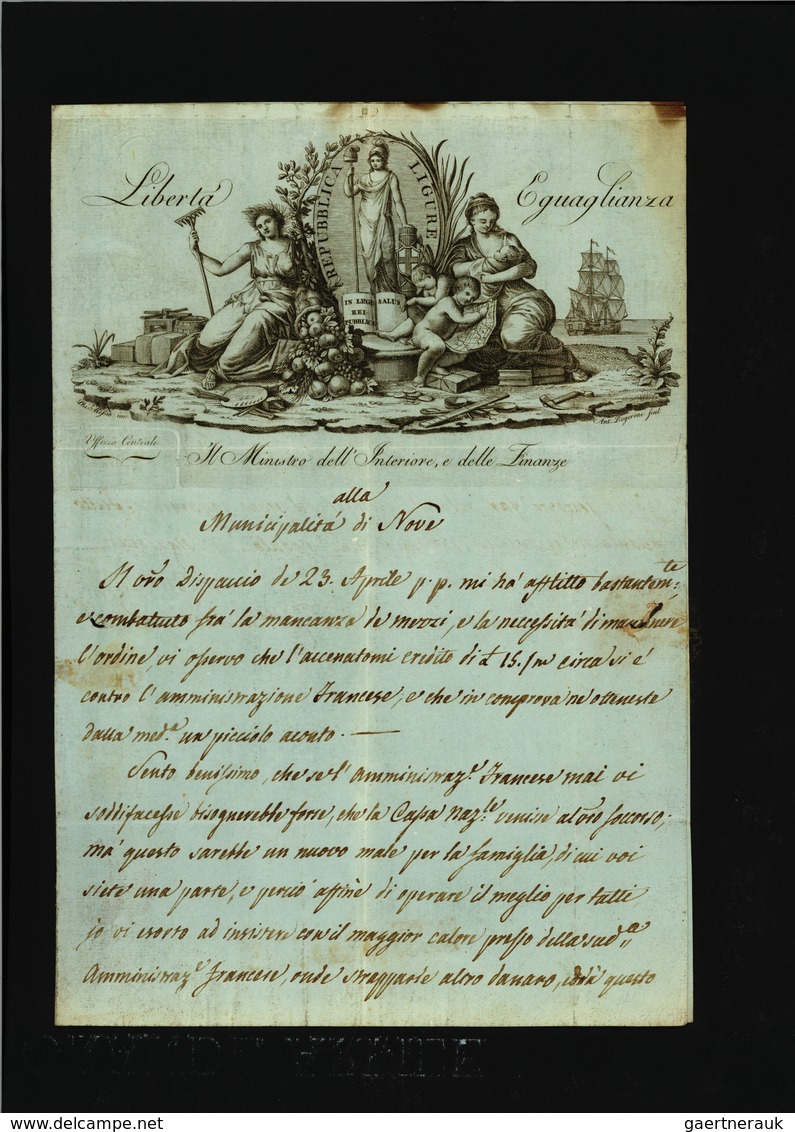 Libertà
Eguaglianza
REPUBBLICA LIGURE
IN LEGE SALUS
REI-
PUBBLICÆ
inv.
Ant. sculp.
Uffizio Centrale
Il Ministro dell'Interiore, e delle Finanze
alla
Municipalità di Nove
Il vrō Dispaccio de 23. Aprile p.p. mi hà afflitto bastantemte
e combattuto frà la mancanza de mezzi, e la neccessità di mantenere
l'ordine vi osservo che l'accenatomi credito di £ 15./m circa si è
contro l'amministrazione Francese, e che in comprova ne otteneste
dalla meda un picciolo aconto. —
Sento benissimo, che se l'Amministraze Francese mai vi
soddifacesse bisognerebbe forse, che la Cassa Nazle venisse al vrō soccorso;
mà questo sarebbe un nuovo male per la famiglia, di cui voi
siete una parte, e perciò affine di operare il meglio per tutti
jo vi esorto ad insistere con il maggior calore presso della suda
Amministraze Francese, onde strapparle altro danaro, e dà questo
delcampe.net
gaertnerauk